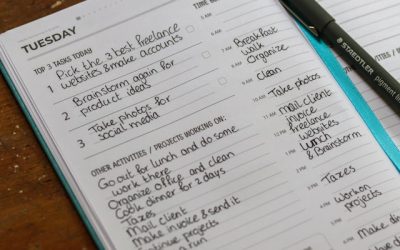 TUESDAY
TOP 3 TASKS TODAY
1 Pick the 3 best freelance
websites & make accounts
2 Brainstorm again for
product ideas
3 Take photos for
social media
OTHER ACTIVITIES / PROJECTS WORKING ON:
Go out for lunch and do some
work there
Organize office and clean
Cook dinner for 2 days
Taxes
Mail client
Make invoice & send it
continue projects
a run
TIME
5 AM
6 AM
7 AM Breakfast
walk
Organize
clean
Take photos
mail client
invoice
freelance
websites
Lunch
& Brainstorm
Taxes
Work on
projects
Make din
STAEDTLER
pigment liner